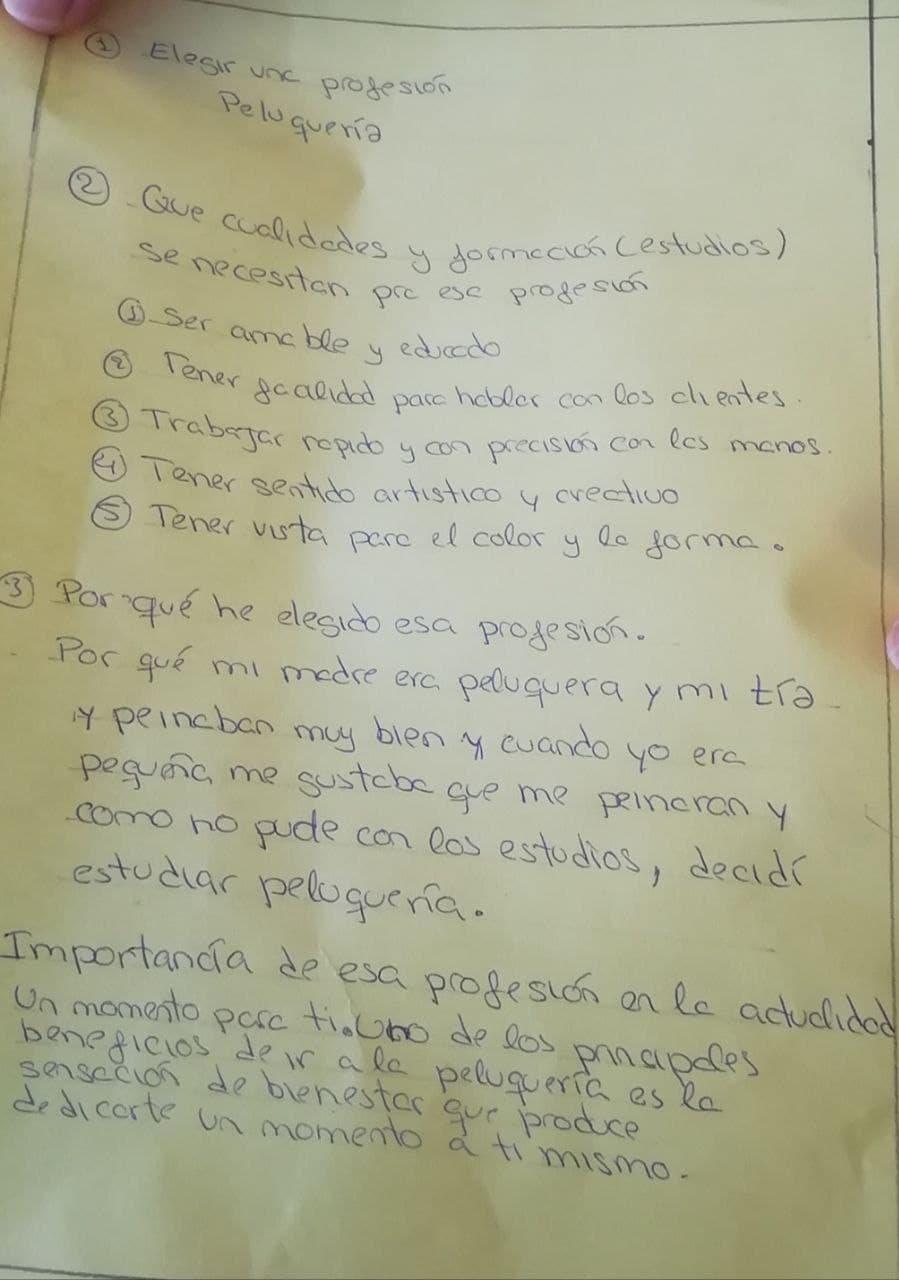 ① Elegir una profesión
Peluquería
② Que cualidades y formación (estudios)
se necesitan pra esa profesión
① Ser amable y educado
② Tener facalidad para hablar con los clientes.
③ Trabajar rapido y con precisión con las manos.
④ Tener sentido artistico y creativo
⑤ Tener vista para el color y la forma.
③ Por qué he elegido esa profesión.
Por qué mi madre era peluquera y mi tía
y peinaban muy bien y cuando yo era
pequeña me gustaba que me peinaran y
como no pude con los estudios, decidí
estudiar peluquería.
Importancía de esa profesión en la actualidad
Un momento para ti. Uno de los principales
beneficios de ir a la peluquería es la
sensación de bienestar que produce
dedicarte un momento a ti mismo.